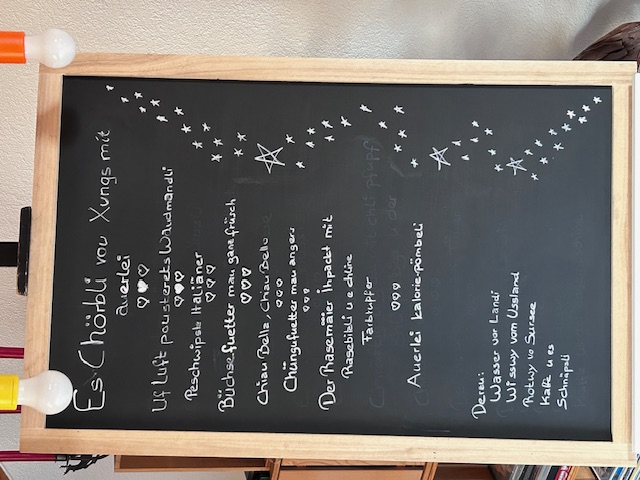 Es Chörbli vou Xungs mit
auerlei
Uf Luft pousterets Waudmandli
Peschwipste Italiäner
Büchsefuetter mau ganz früsch
Chiau Bella, Chiau Bello
Chüngufuetter mau angers
Der Rasemäier ihpackt mit
Rasebitzli u e chline
Farbtupfer
Auerlei kalorie-pömbeli
Derzu:
Wasser vor Landi
Wisswy vom Ussland
Rotwy vo Sursee
Kafe u es
Schnäpsli